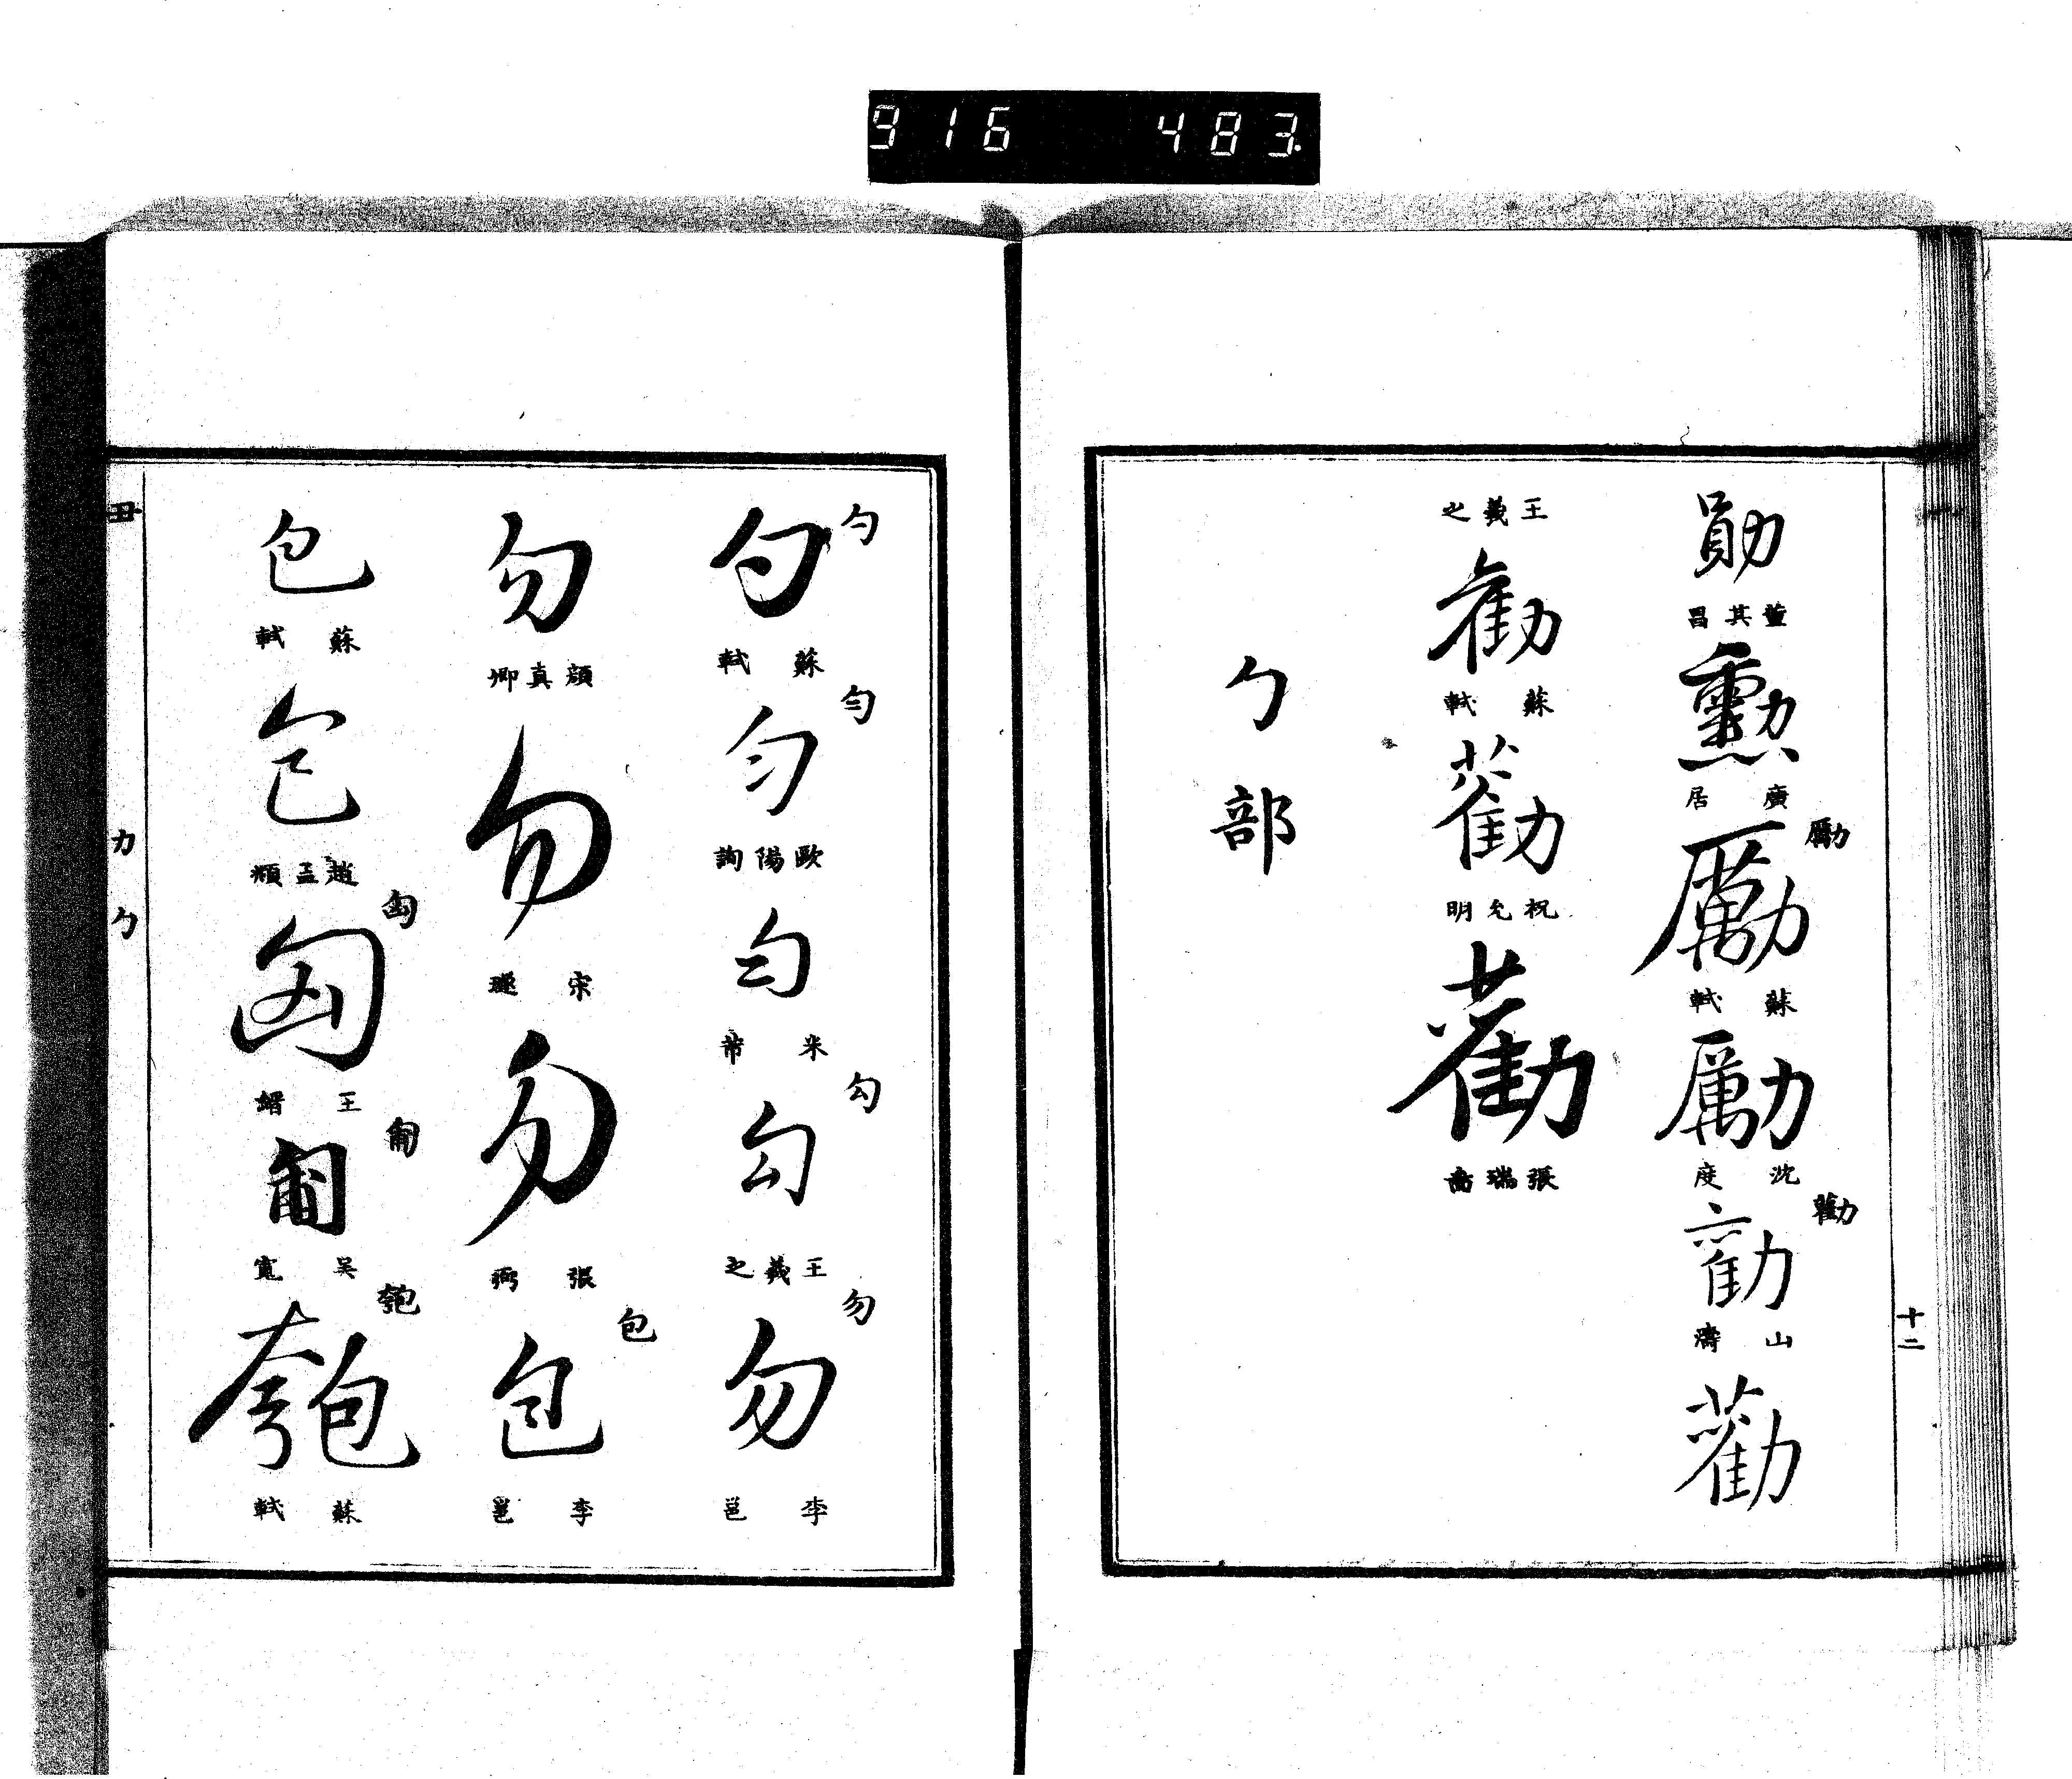 916 483.
勛
董其昌
勳
廣居
勵
勵
蘇軾
勵
沈度
勸
勸
山濤
勸
王羲之
勸
蘇軾
勸
祝允明
勸
張瑞啇
勹部
十二
勺
勺
蘇軾
勻
勻
歐陽詢
勻
米芾
勾
勾
王羲之
勿
勿
李邕
勿
顏真卿
勿
宋璲
勿
張弼
包
包
李邕
包
蘇軾
包
趙孟頫
匈
匈
王縉
匍
匍
吳寬
匏
匏
蘇軾
丑
力
勹